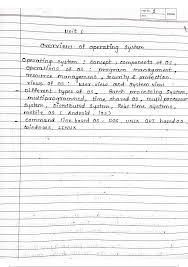 Unit 1
Overview of operating system
Operating system : concept, components of OS,
operations of OS : program management,
resource management, security & protection
views of OS : user view and system view
- Different types of OS, Batch processing system,
multiprogrammed, time shared OS, multiprocessor
system, Distributed system, Real time systems,
mobile OS (Android, iOS)
- command line based OS - DOS, UNIX GUI based OS
Windows, LINUX